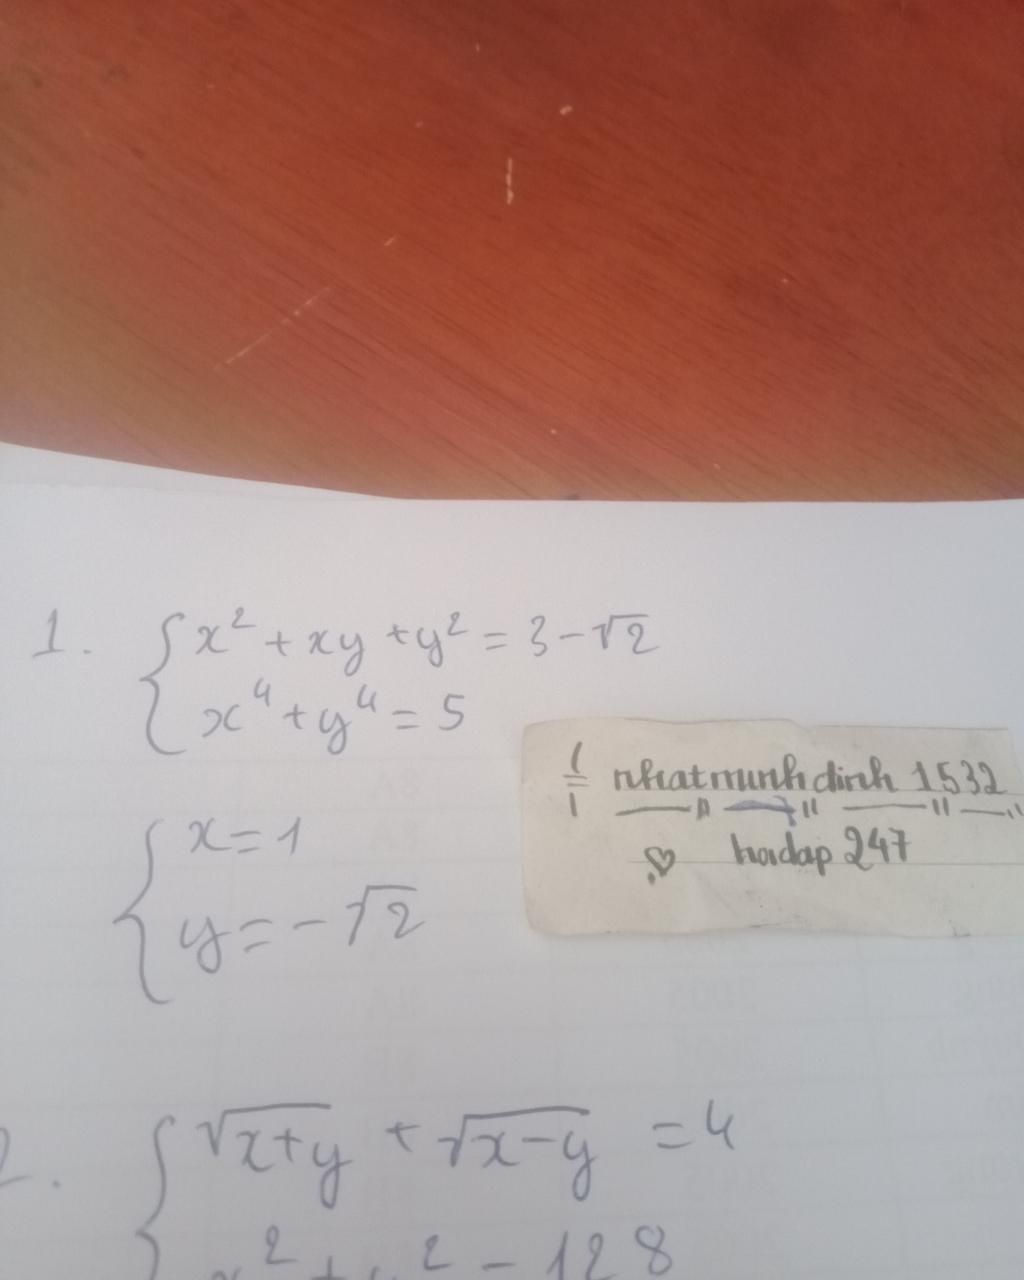 1. { x² + xy + y² = 3 - √2
x⁴ + y⁴ = 5
{ x = 1
y = -√2
nhatminhdinh 1532
hoidap 247
2. { √x+y + √x-y = 4
x² + y² = 128